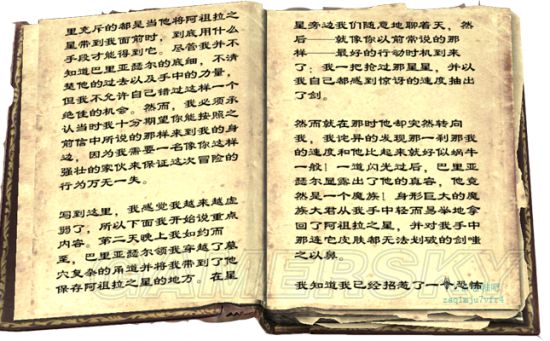 里充斥的都是当他将阿祖拉之
星带到我面前时，到底用什么
手段才能得到它。尽管我并不
知道巴里亚瑟尔的底细，不清
楚他的过去以及手中的力量，
但我不允许自己错过这样一个
绝佳的机会。然而，我必须承
认当时我十分期望你能按照之
前信中所说的那样来到我的身
边，因为我需要一名像你这样
强壮的家伙来保证这次冒险的
行为万无一失。
写到这里，我感觉我越来越虚
弱了，所以下面我开始说重点
内容。第二天晚上我如约而
至，巴里亚瑟尔领我穿越了墓
穴复杂的甬道并将我带到了他
保存阿祖拉之星的地方。在星
星旁边我们随意地聊着天，然
后——就像你以前常说的那
样——最好的行动时机到来
了：我一把抢过那星星，并以
我自己都感到惊讶的速度抽出
了剑。
然而就在那时他却突然转向
我，我诧异的发现那一刹那我
的速度和他比起来就好似蜗牛
一般！一道闪光过后，巴里亚
瑟尔显露出了他的真容，他竟
然是一个魔族！身形巨大的魔
族大君从我手中轻而易举地拿
回了阿祖拉之星，并对我手中
那连它皮肤都无法划破的剑嗤
之以鼻。
我知道我已经招惹了一个恐怖
GAMERSKY
zaqimju7vfr4